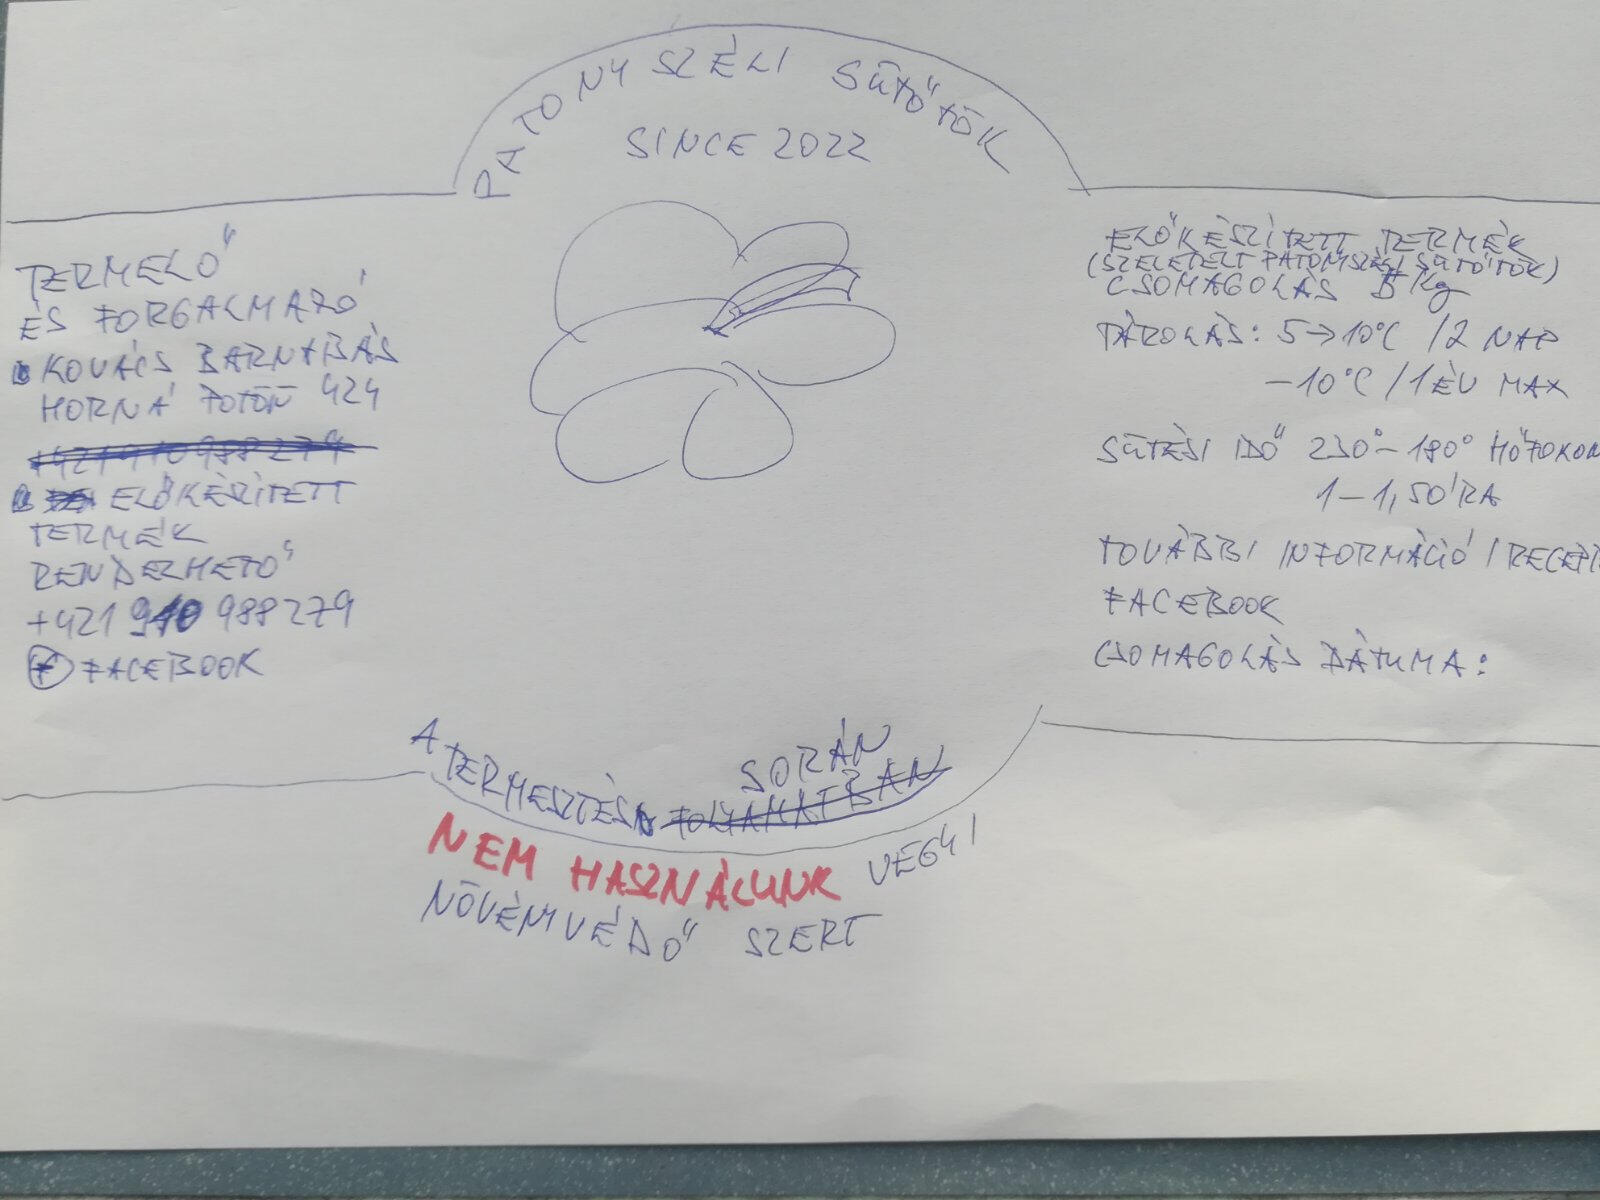 PATONYSZÉLI SÜTŐTÖK
SINCE 2022
TERMELŐ
ÉS FORGALMAZÓ
KOVÁCS BARNABÁS
HORNÁ POTÔŇ 424
+421 910 988 279
ELŐKÉSZÍTETT
TERMÉK
RENDERHETŐ
+421 910 988 279
f FACEBOOK
ELŐKÉSZÍTETT TERMÉK
(SZELETELT PATONYSZÉLI SÜTŐTÖK)
CSOMAGOLÁS Kg
TÁROLÁS: 5→10°C /2 NAP
-10°C /1 ÉV MAX
SÜTÉSI IDŐ 230°-180° HŐFOKON
1-1,5 ÓRA
TOVÁBBI INFORMÁCIÓ / RECEPT
FACEBOOK
CSOMAGOLÁS DÁTUMA:
A TERMESZTÉS SORÁN
FOLYAMATBAN
NEM HASZNÁLUNK VEGYI
NÖVÉNYVÉDŐ SZERT